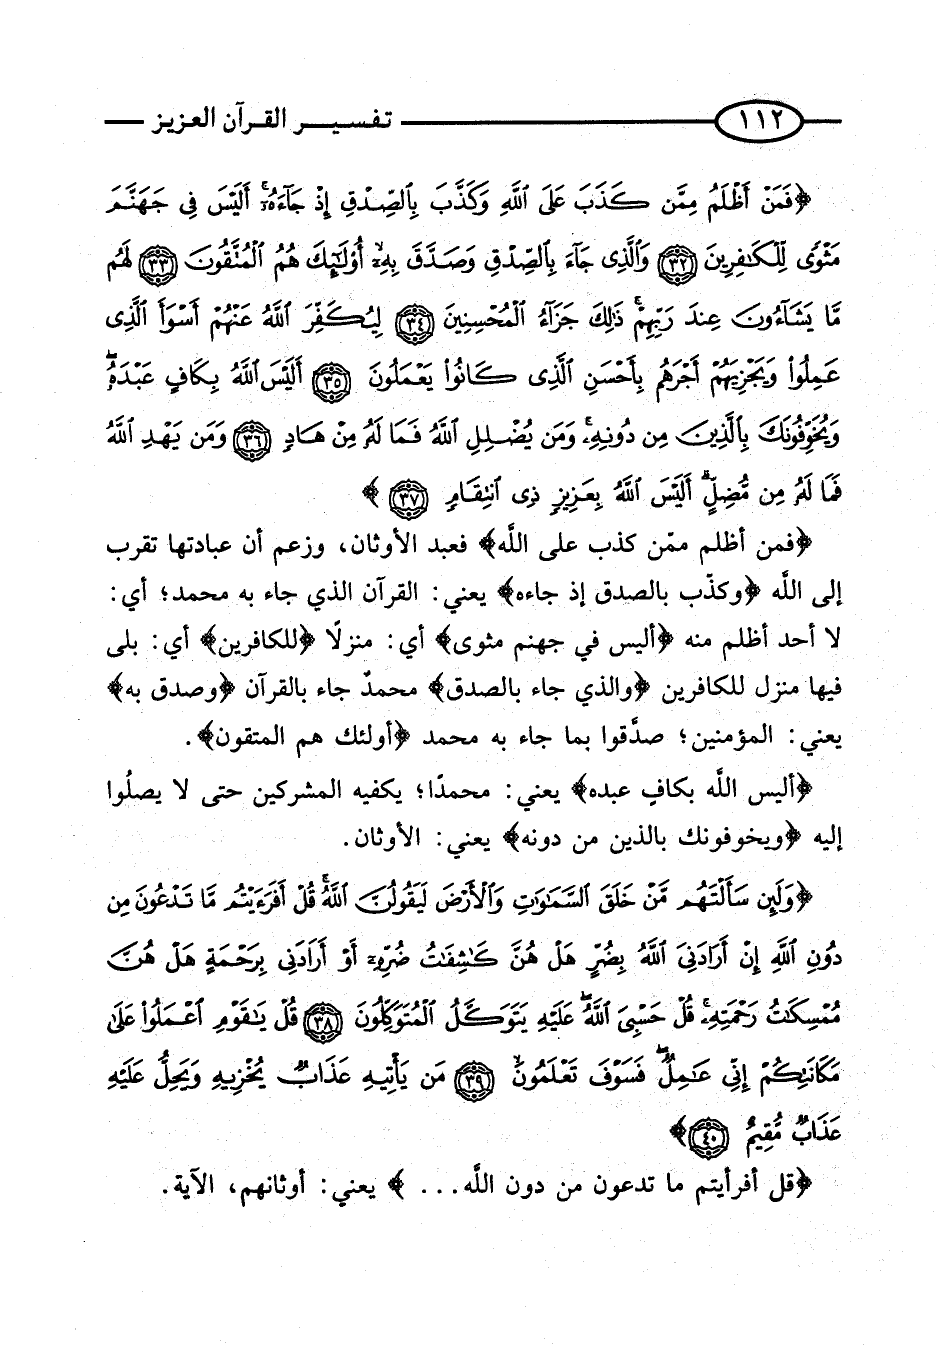 ١١٢ تفسير القرآن العزيز
﴿فَمَنْ أَظْلَمُ مِمَّن كَذَبَ عَلَى اللَّهِ وَكَذَّبَ بِالصِّدْقِ إِذْ جَآءَهُۥٓ أَلَيْسَ فِى جَهَنَّمَ
مَثْوًى لِّلْكَٰفِرِينَ ﴿٣٢﴾ وَالَّذِى جَآءَ بِالصِّدْقِ وَصَدَّقَ بِهِۦٓ أُوْلَٰٓئِكَ هُمُ الْمُتَّقُونَ ﴿٣٣﴾ لَهُم
مَّا يَشَآءُونَ عِندَ رَبِّهِمْ ذَٰلِكَ جَزَآءُ الْمُحْسِنِينَ ﴿٣٤﴾ لِيُكَفِّرَ اللَّهُ عَنْهُمْ أَسْوَأَ الَّذِى
عَمِلُواْ وَيَجْزِيَهُمْ أَجْرَهُم بِأَحْسَنِ الَّذِى كَانُواْ يَعْمَلُونَ ﴿٣٥﴾ أَلَيْسَ اللَّهُ بِكَافٍ عَبْدَهُۥ
وَيُخَوِّفُونَكَ بِالَّذِينَ مِن دُونِهِۦ وَمَن يُضْلِلِ اللَّهُ فَمَا لَهُۥ مِنْ هَادٍ ﴿٣٦﴾ وَمَن يَهْدِ اللَّهُ
فَمَا لَهُۥ مِن مُّضِلٍّ أَلَيْسَ اللَّهُ بِعَزِيزٍ ذِى انتِقَامٍ ﴿٣٧﴾﴾
﴿فمن أظلم ممّن كذب على اللَّه﴾ فعبد الأوثان، وزعم أن عبادتها تقرب
إلى اللَّه ﴿وكذّب بالصدق إذ جاءه﴾ يعني: القرآن الذي جاء به محمد؛ أي:
لا أحد أظلم منه ﴿أليس في جهنم مثوى﴾ أي: منزلًا ﴿للكافرين﴾ أي: بلى
فيها منزل للكافرين ﴿والذي جاء بالصدق﴾ محمدٌ جاء بالقرآن ﴿وصدق به﴾
يعني: المؤمنين؛ صدَّقوا بما جاء به محمد ﴿أولئك هم المتقون﴾.
﴿أليس اللَّه بكافٍ عبده﴾ يعني: محمدًا؛ يكفيه المشركين حتى لا يصلُوا
إليه ﴿ويخوفونك بالذين من دونه﴾ يعني: الأوثان.
﴿وَلَئِن سَأَلْتَهُم مَّنْ خَلَقَ السَّمَٰوَٰتِ وَالْأَرْضَ لَيَقُولُنَّ اللَّهُ قُلْ أَفَرَءَيْتُم مَّا تَدْعُونَ مِن
دُونِ اللَّهِ إِنْ أَرَادَنِىَ اللَّهُ بِضُرٍّ هَلْ هُنَّ كَٰشِفَٰتُ ضُرِّهِۦٓ أَوْ أَرَادَنِى بِرَحْمَةٍ هَلْ هُنَّ
مُمْسِكَٰتُ رَحْمَتِهِۦ قُلْ حَسْبِىَ اللَّهُ عَلَيْهِ يَتَوَكَّلُ الْمُتَوَكِّلُونَ ﴿٣٨﴾ قُلْ يَٰقَوْمِ اعْمَلُواْ عَلَىٰ
مَكَانَتِكُمْ إِنِّى عَٰمِلٌ فَسَوْفَ تَعْلَمُونَ ﴿٣٩﴾ مَن يَأْتِيهِ عَذَابٌ يُخْزِيهِ وَيَحِلُّ عَلَيْهِ
عَذَابٌ مُّقِيمٌ ﴿٤٠﴾﴾
﴿قل أفرأيتم ما تدعون من دون اللَّه... ﴾ يعني: أوثانهم، الآية.